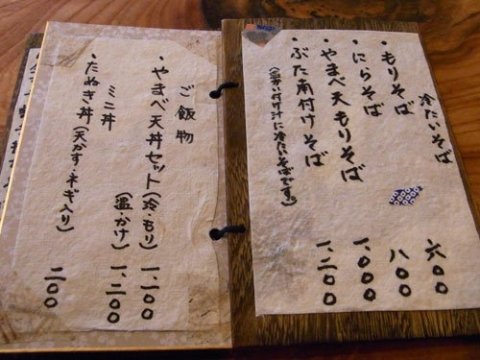 冷たいそば
・もりそば 六〇〇
・にらそば 八〇〇
・やまべ天もりそば 一、〇〇〇
・ぶた南付けそば 一、二〇〇
(温い付け汁に冷たいそばです。)
ご飯物
・やまべ天丼セット(冷・もり) 一、二〇〇
(温・かけ) 一、二〇〇
ミニ丼
・たぬき丼(天かす・ネギ入り) 二〇〇